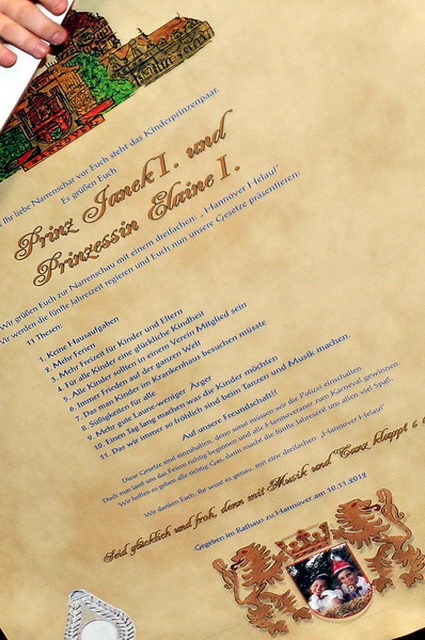 Ihr liebe Narrenschar vor Euch steht das Kinderprinzenpaar.
Es grüßen Euch
Prinz Janek I. und
Prinzessin Elaine I.
Wir grüßen Euch zur Narrenschau mit einem dreifachen: „Hannover Helau!"
Wir werden die fünfte Jahreszeit regieren und Euch nun unsere Gesetze präsentieren:
11 Thesen:
1. Keine Hausaufgaben
2. Mehr Ferien
3. Mehr Freizeit für Kinder und Eltern
4. Für alle Kinder eine glückliche Kindheit
5. Alle Kinder sollten in einem Verein Mitglied sein
6. Immer Frieden auf der ganzen Welt
7. Das man Kinder im Krankenhaus besuchen müsste
8. Süßigkeiten für alle
9. Mehr gute Laune-weniger Ärger
10. Einen Tag lang machen was die Kinder möchten
11. Das wir immer so fröhlich sind beim Tanzen und Musik machen.
Auf unsere Freundschaft!!
Diese Gesetze sind einzuhalten, denn sonst müssen wir die Polizei einschalten.
Doch nun lasst uns das Feiern richtig beginnen und alle Hannoveraner zum Karneval gewinnen.
Wir hoffen es geben alle richtig Gas, dann macht die fünfte Jahreszeit uns allen viel Spaß.
Wir danken Euch, Ihr wisst es genau, mit eine dreifachen: „Hannover Helau!"
Seid glücklich und froh, denn mit Musik und Tanz klappt
Gegeben im Rathaus zu Hannover am 10.11.2012